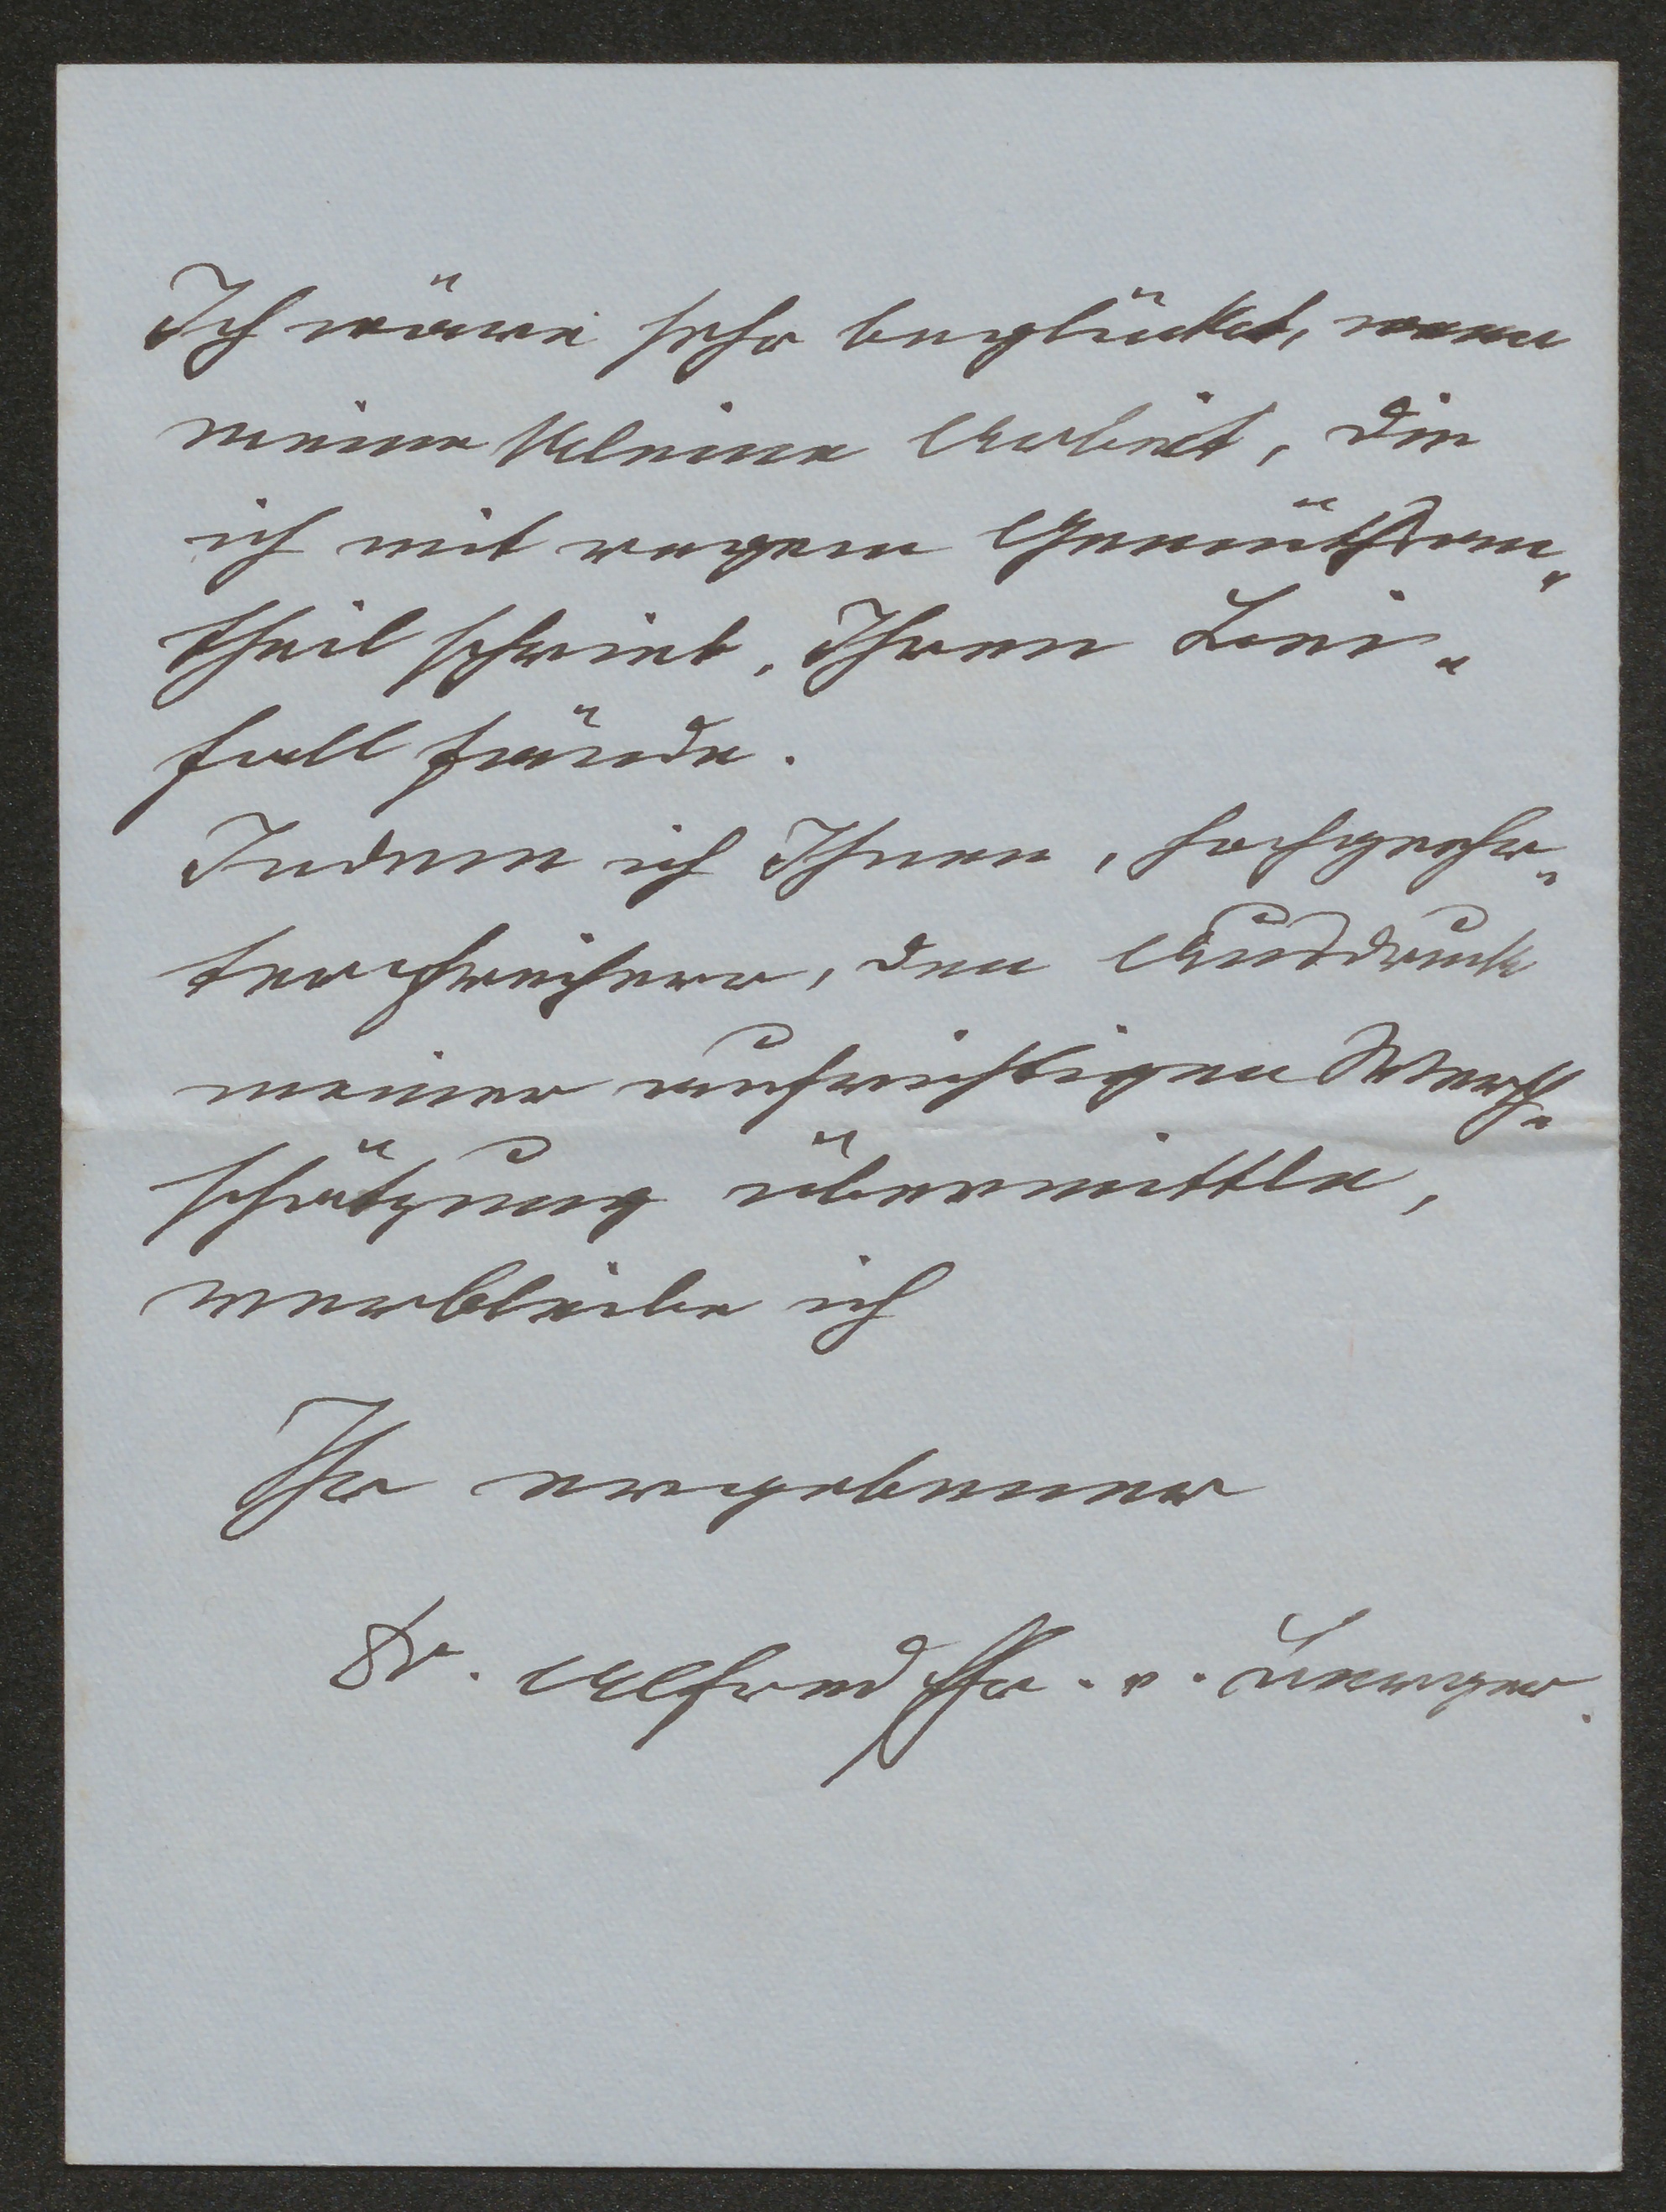 Ich wäre sehr beglückt, wenn
meine kleine Arbeit, die
ich mit regem Gemüthsan„
theil schrieb, Ihren Bei„
fall fände.
Indem ich Ihnen, hochgeehr„
ter Freiherr, den Ausdruck
meiner aufrichtigen Werth„
schätzung übermittle,
verbleibe ich
Ihr ergebener
Dr. Alfred Fhr. v. Berger.